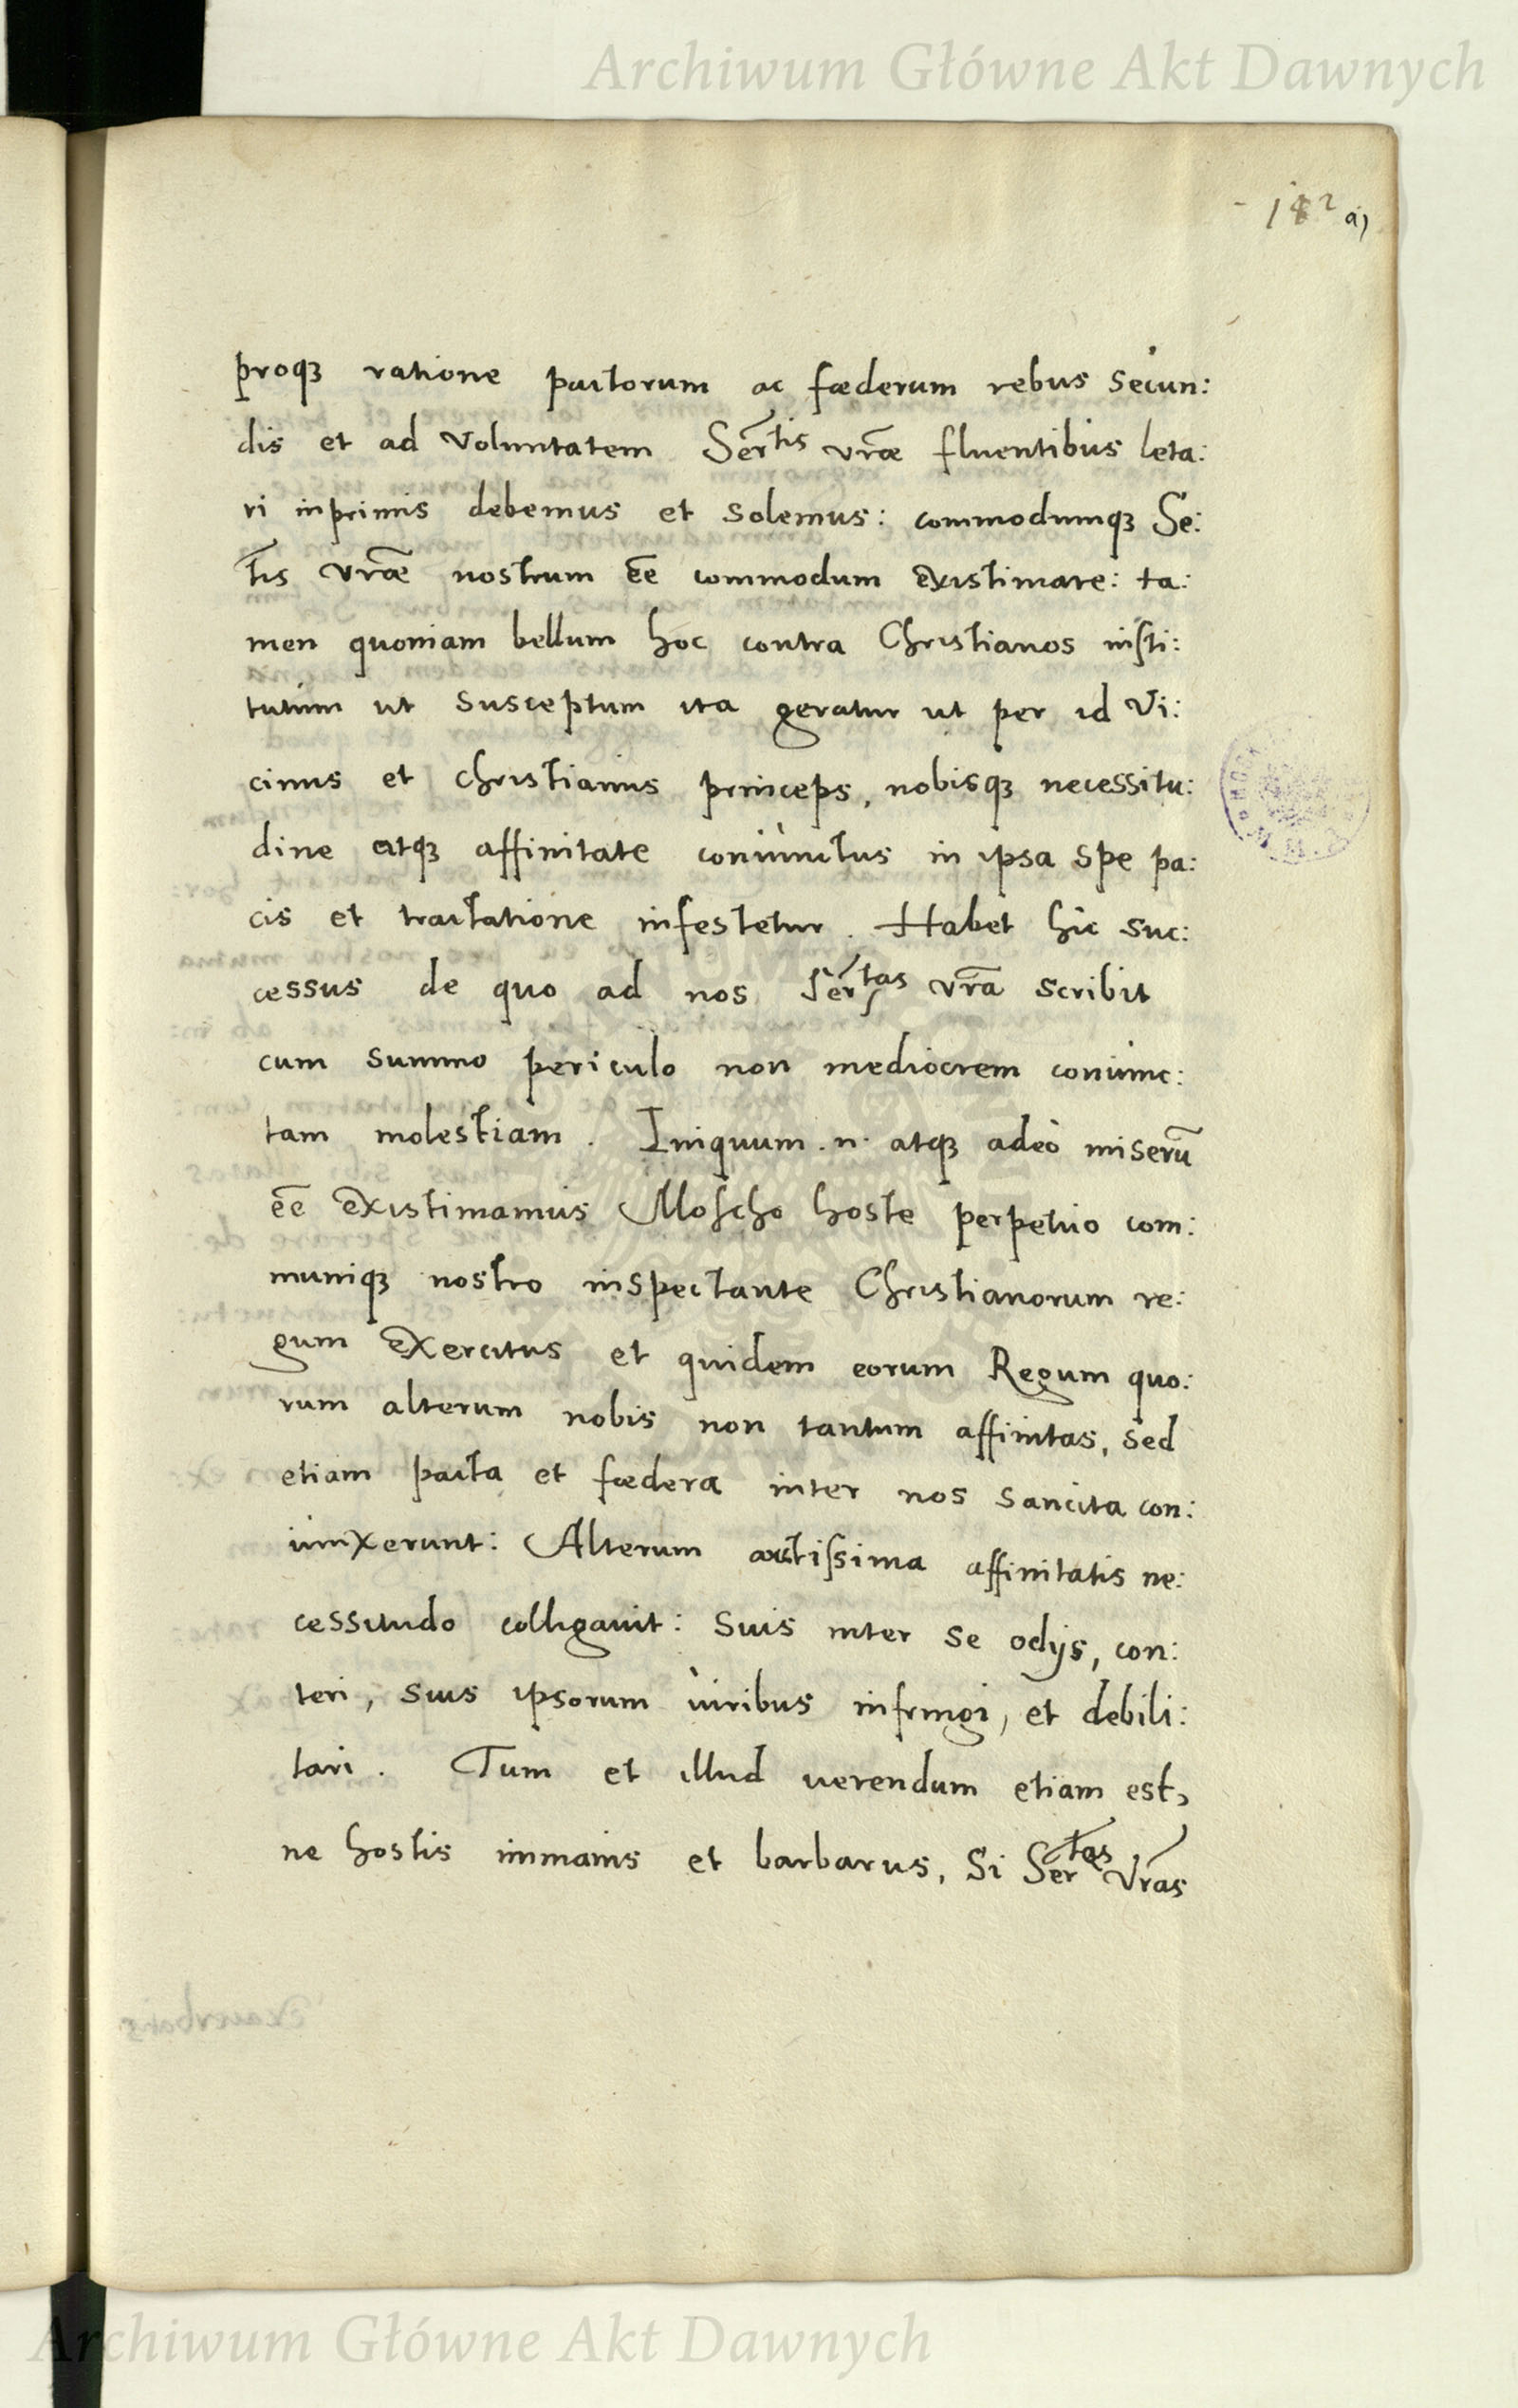 Archiwum Główne Akt Dawnych
- 182 a)
proqꝫ ratione pactorum ac fœderum rebus secun:
dis et ad voluntatem Ser̃tis vr̃æ fluentibus leta:
ri inprimis debemus et solemus: commodumqꝫ Se:
t̃is vr̃æ nostrum ẽe commodum existimare: ta:
men quoniam bellum hoc contra Christianos insti:
tutum ut susceptum ita geratur ut per id vi:
cinus et christianus princeps, nobisqꝫ necessitu:
dine atqꝫ affinitate coniunctus in ipsa spe pa:
cis et tractatione infestetur. Habet hic suc:
cessus de quo ad nos Ser̃tas vr̃a scribit
cum summo periculo non mediocrem coniunc:
tam molestiam. Iniquum .n. atqꝫ adeò miserũ
ẽe existimamus Moscho hoste perpetuo com:
muniqꝫ nostro inspectante Christianorum re:
gum exercitus et quidem eorum Regum quo:
rum alterum nobis non tantum affinitas, sed
etiam pacta et fœdera inter nos sancita con:
iunxerunt: Alterum arctissima affinitatis ne:
cessitudo colligauit: suis inter se odijs, con:
teri, suis ipsorum uiribus infringi, et debili:
tari. Tum et illud uerendum etiam est,
ne hostis immanis et barbarus, si Sertas vr̃as
Archiwum Główne Akt Dawnych